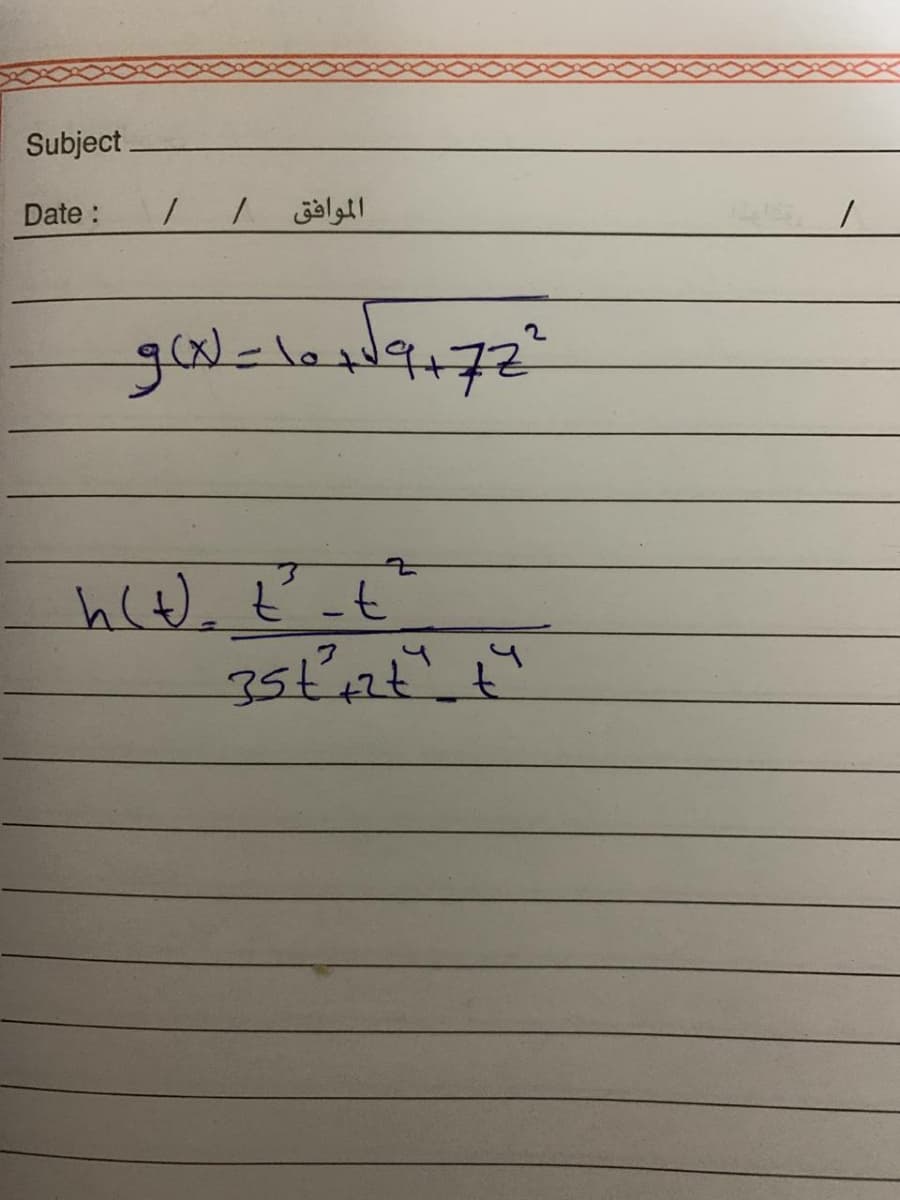 Subject
Date : / / الموافق /
g(x) = 10 + √9+7z²
h(t) = t³ - t²
35t³+2t⁴ - t⁴